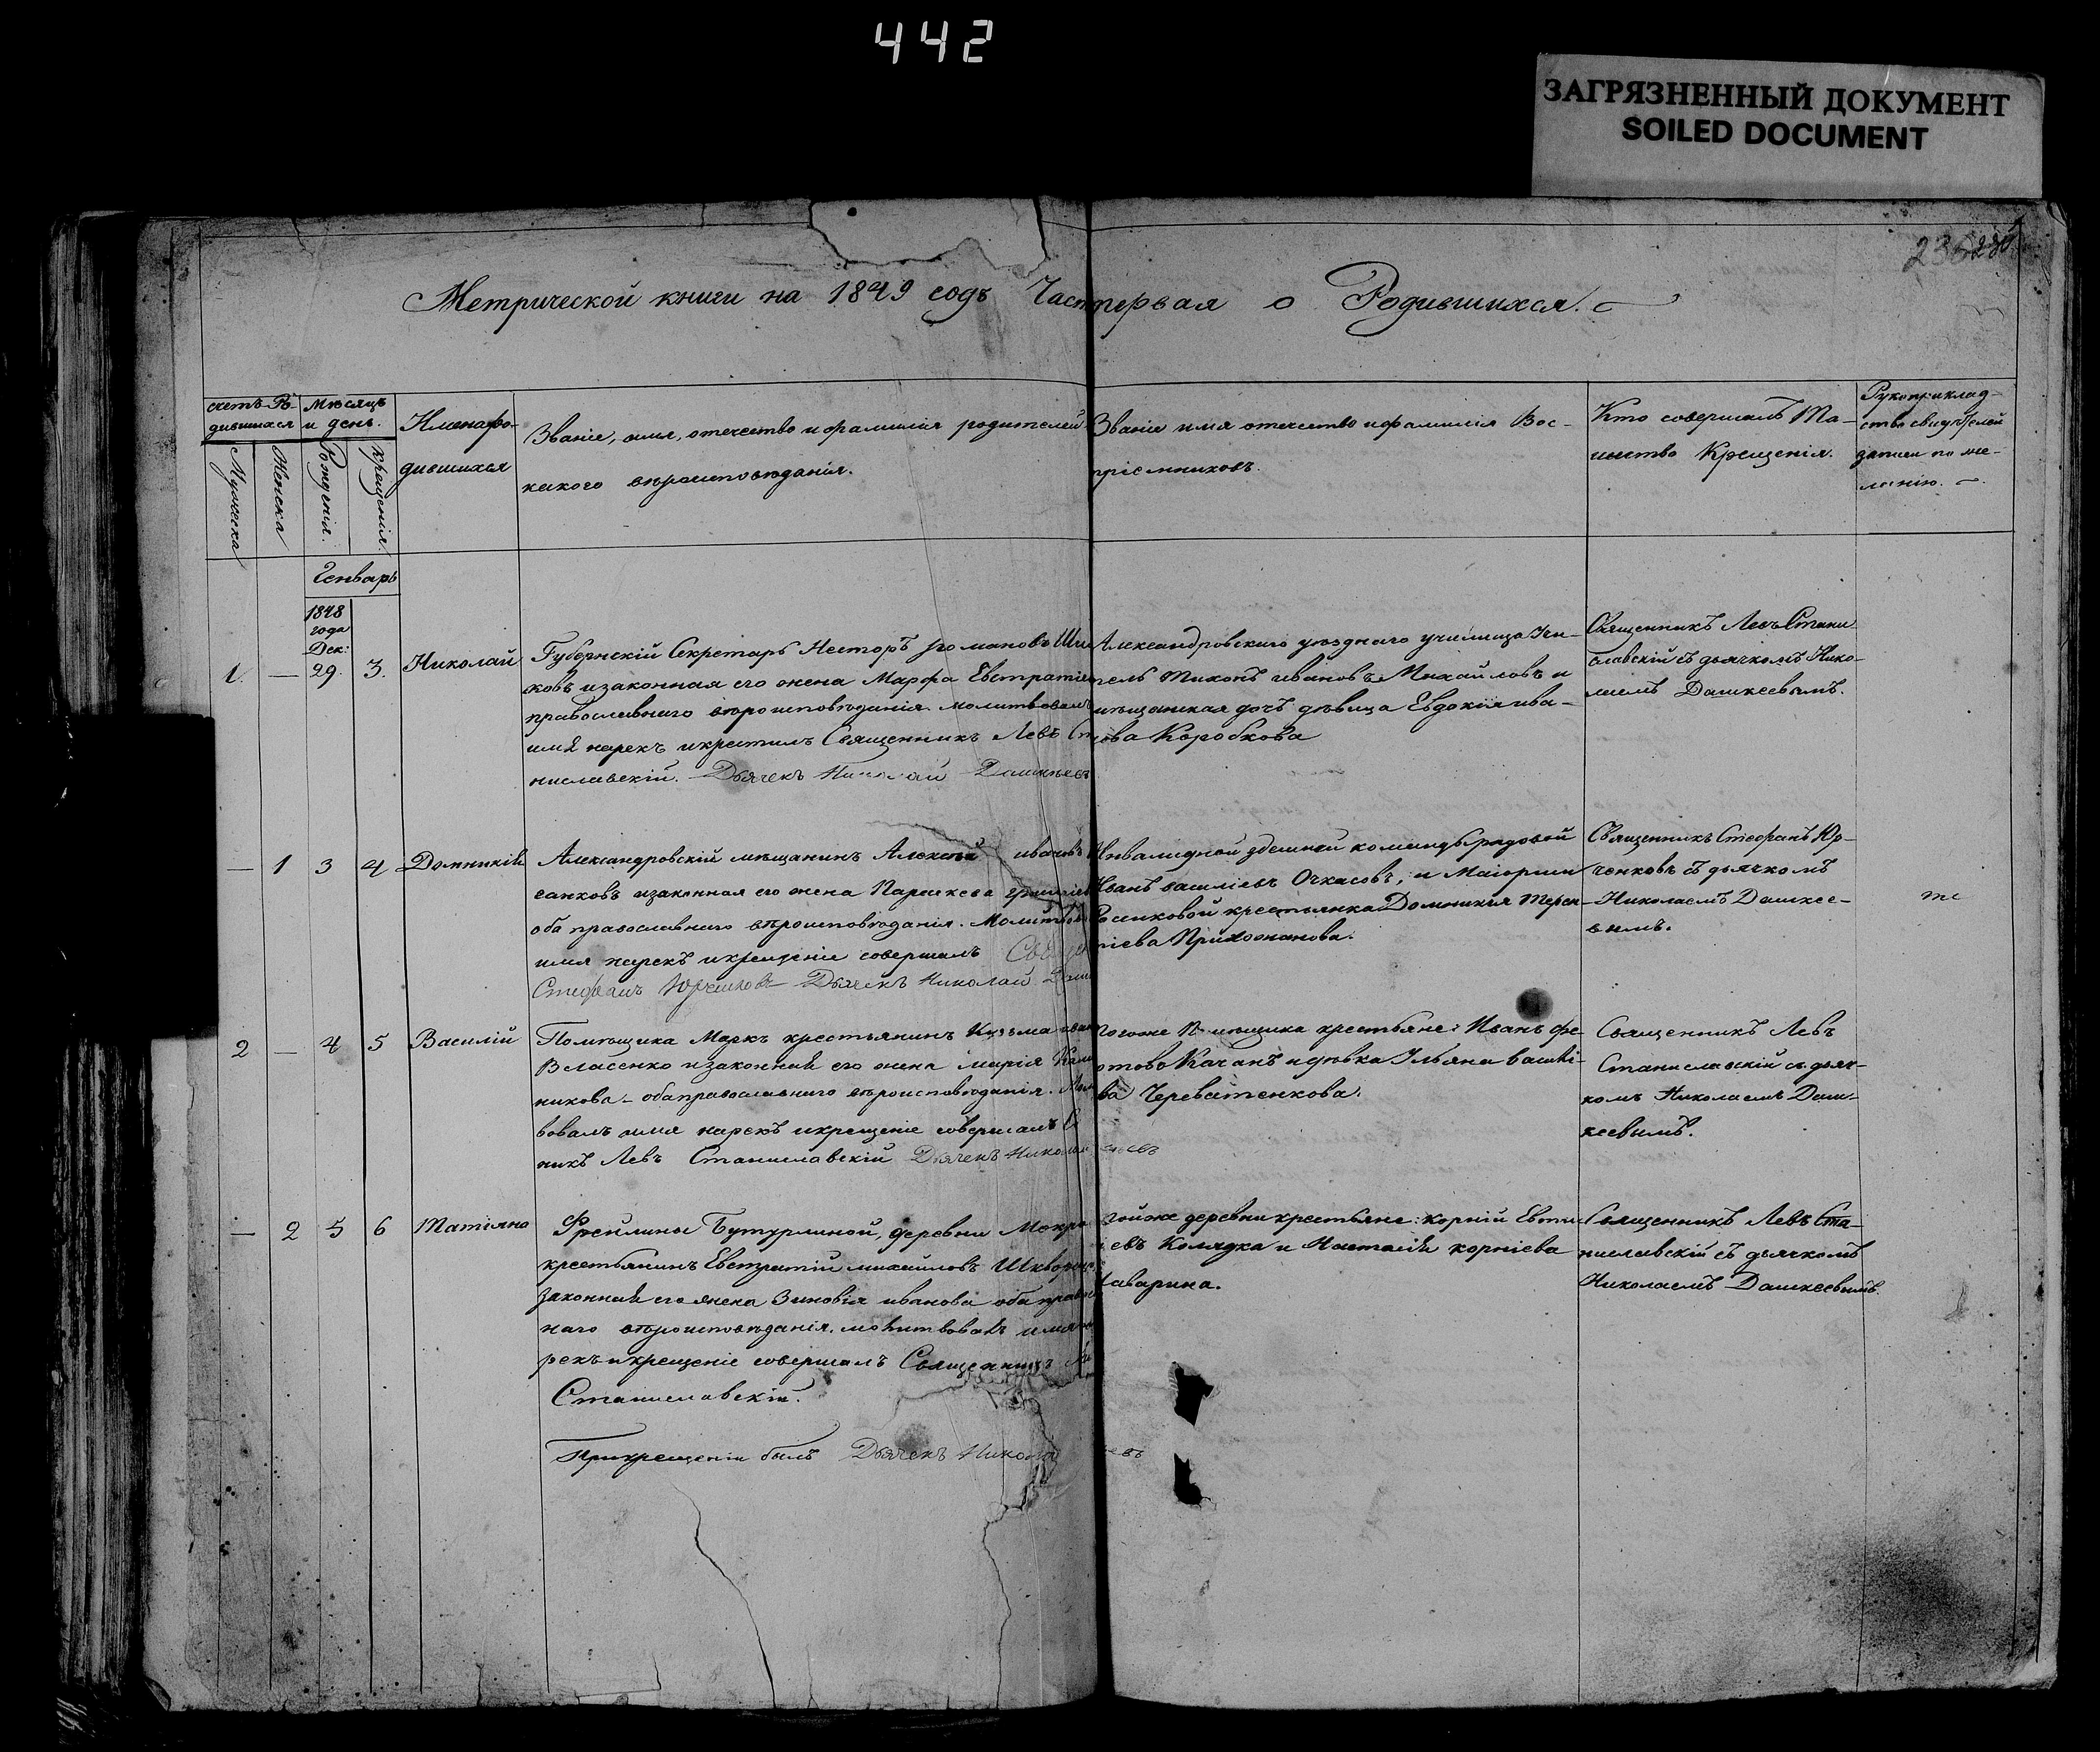 442
ЗАГРЯЗНЕННЫЙ ДОКУМЕНТ
SOILED DOCUMENT
Метрической книги на 1849 годъ Част первая о Родившихся.
счетъ Ро-
дившихся
Мужеска
Женска
мѣсяцъ
и день.
Рожденія.
крещенія.
Имена ро-
дившихся
Званіе, имя, отечество и фамилія родителей
какого вѣроисповѣданія.
Званіе имя отечество и фамилія Вос-
пріемниковъ.
Кто совершалъ Та-
инство Крещенія.
Рукоприклад-
ство свидѣтелей
записи по же-
ланію.
Генварь
1848
года
Дек:
1. — 29. 3. Николай
Губернскій Секретарь Несторъ Романовъ
ковъ и законная его жена Марфа Евстратіе
православнаго вѣроисповѣданія. молитвовалъ
имя нарекъ и крестилъ Священникъ Левъ Ст
ниславскій. Дьячекъ Николай Дашкеев
Александровскаго уѣзднаго училища Учи-
тель Тихонъ ивановъ Михайловъ и
мѣщанская дочь дѣвица Евдокія ива-
нова Коробкова
Священникъ Левъ Стани
славскій съ дьячкомъ Нико-
лаемъ Дашкеевымъ.
— 1 3 4 Домникія
Александровскій мѣщанинъ Алексѣй ивановъ
санковъ и законная его жена Параскева
оба православнаго вѣроисповѣданія. Молитво
имя нарекъ и крещеніе совершалъ Священ
Стефанъ Юрченковъ Дьячекъ Николай Даш
Инвалидной здешней команды рядовой
Иванъ василіевъ Очкасовъ, и Маіорши
крестьянка Домникія Терен-
тіева Прихожанова.
Священникъ Стефанъ Юр-
ченковъ съ дьячкомъ
Николаемъ Дашкее-
вымъ.
2 — 4 5 Василій
Помѣщика Маркъ крестьянинъ Кузьма иван
Власенко и законная его жена марія
никова - оба православнаго вѣроисповѣданія. Мол
вовалъ имя нарекъ и крещеніе совершалъ С
никъ Левъ Станиславскій Дьячекъ Николай еевъ
тогоже Помѣщика крестьяне: Иванъ фе-
отовъ Качанъ и дѣвка Ульяна васил-
ва Череватенкова.
Священникъ Левъ
Станиславскій съ дьяч-
комъ Николаемъ Даш-
кеевымъ.
— 2 5 6 Татіяна
Фрейлины Бутурлиной, деревни Мокро
крестьянинъ Евстратій михайловъ
законная его жена Зиновія иванова оба право
наго вѣроисповѣданія. молитвовалъ имя на
рекъ и крещеніе совершалъ Священникъ Ле
Станиславскій.
При крещеніи былъ Дьячекъ Николай евъ
тойже деревни крестьяне: корній Евти
евъ Колядка и Настасія корніева
Гаварина.
Священникъ Левъ Ста-
ниславскій съ дьячкомъ
Николаемъ Дашкеевымъ.